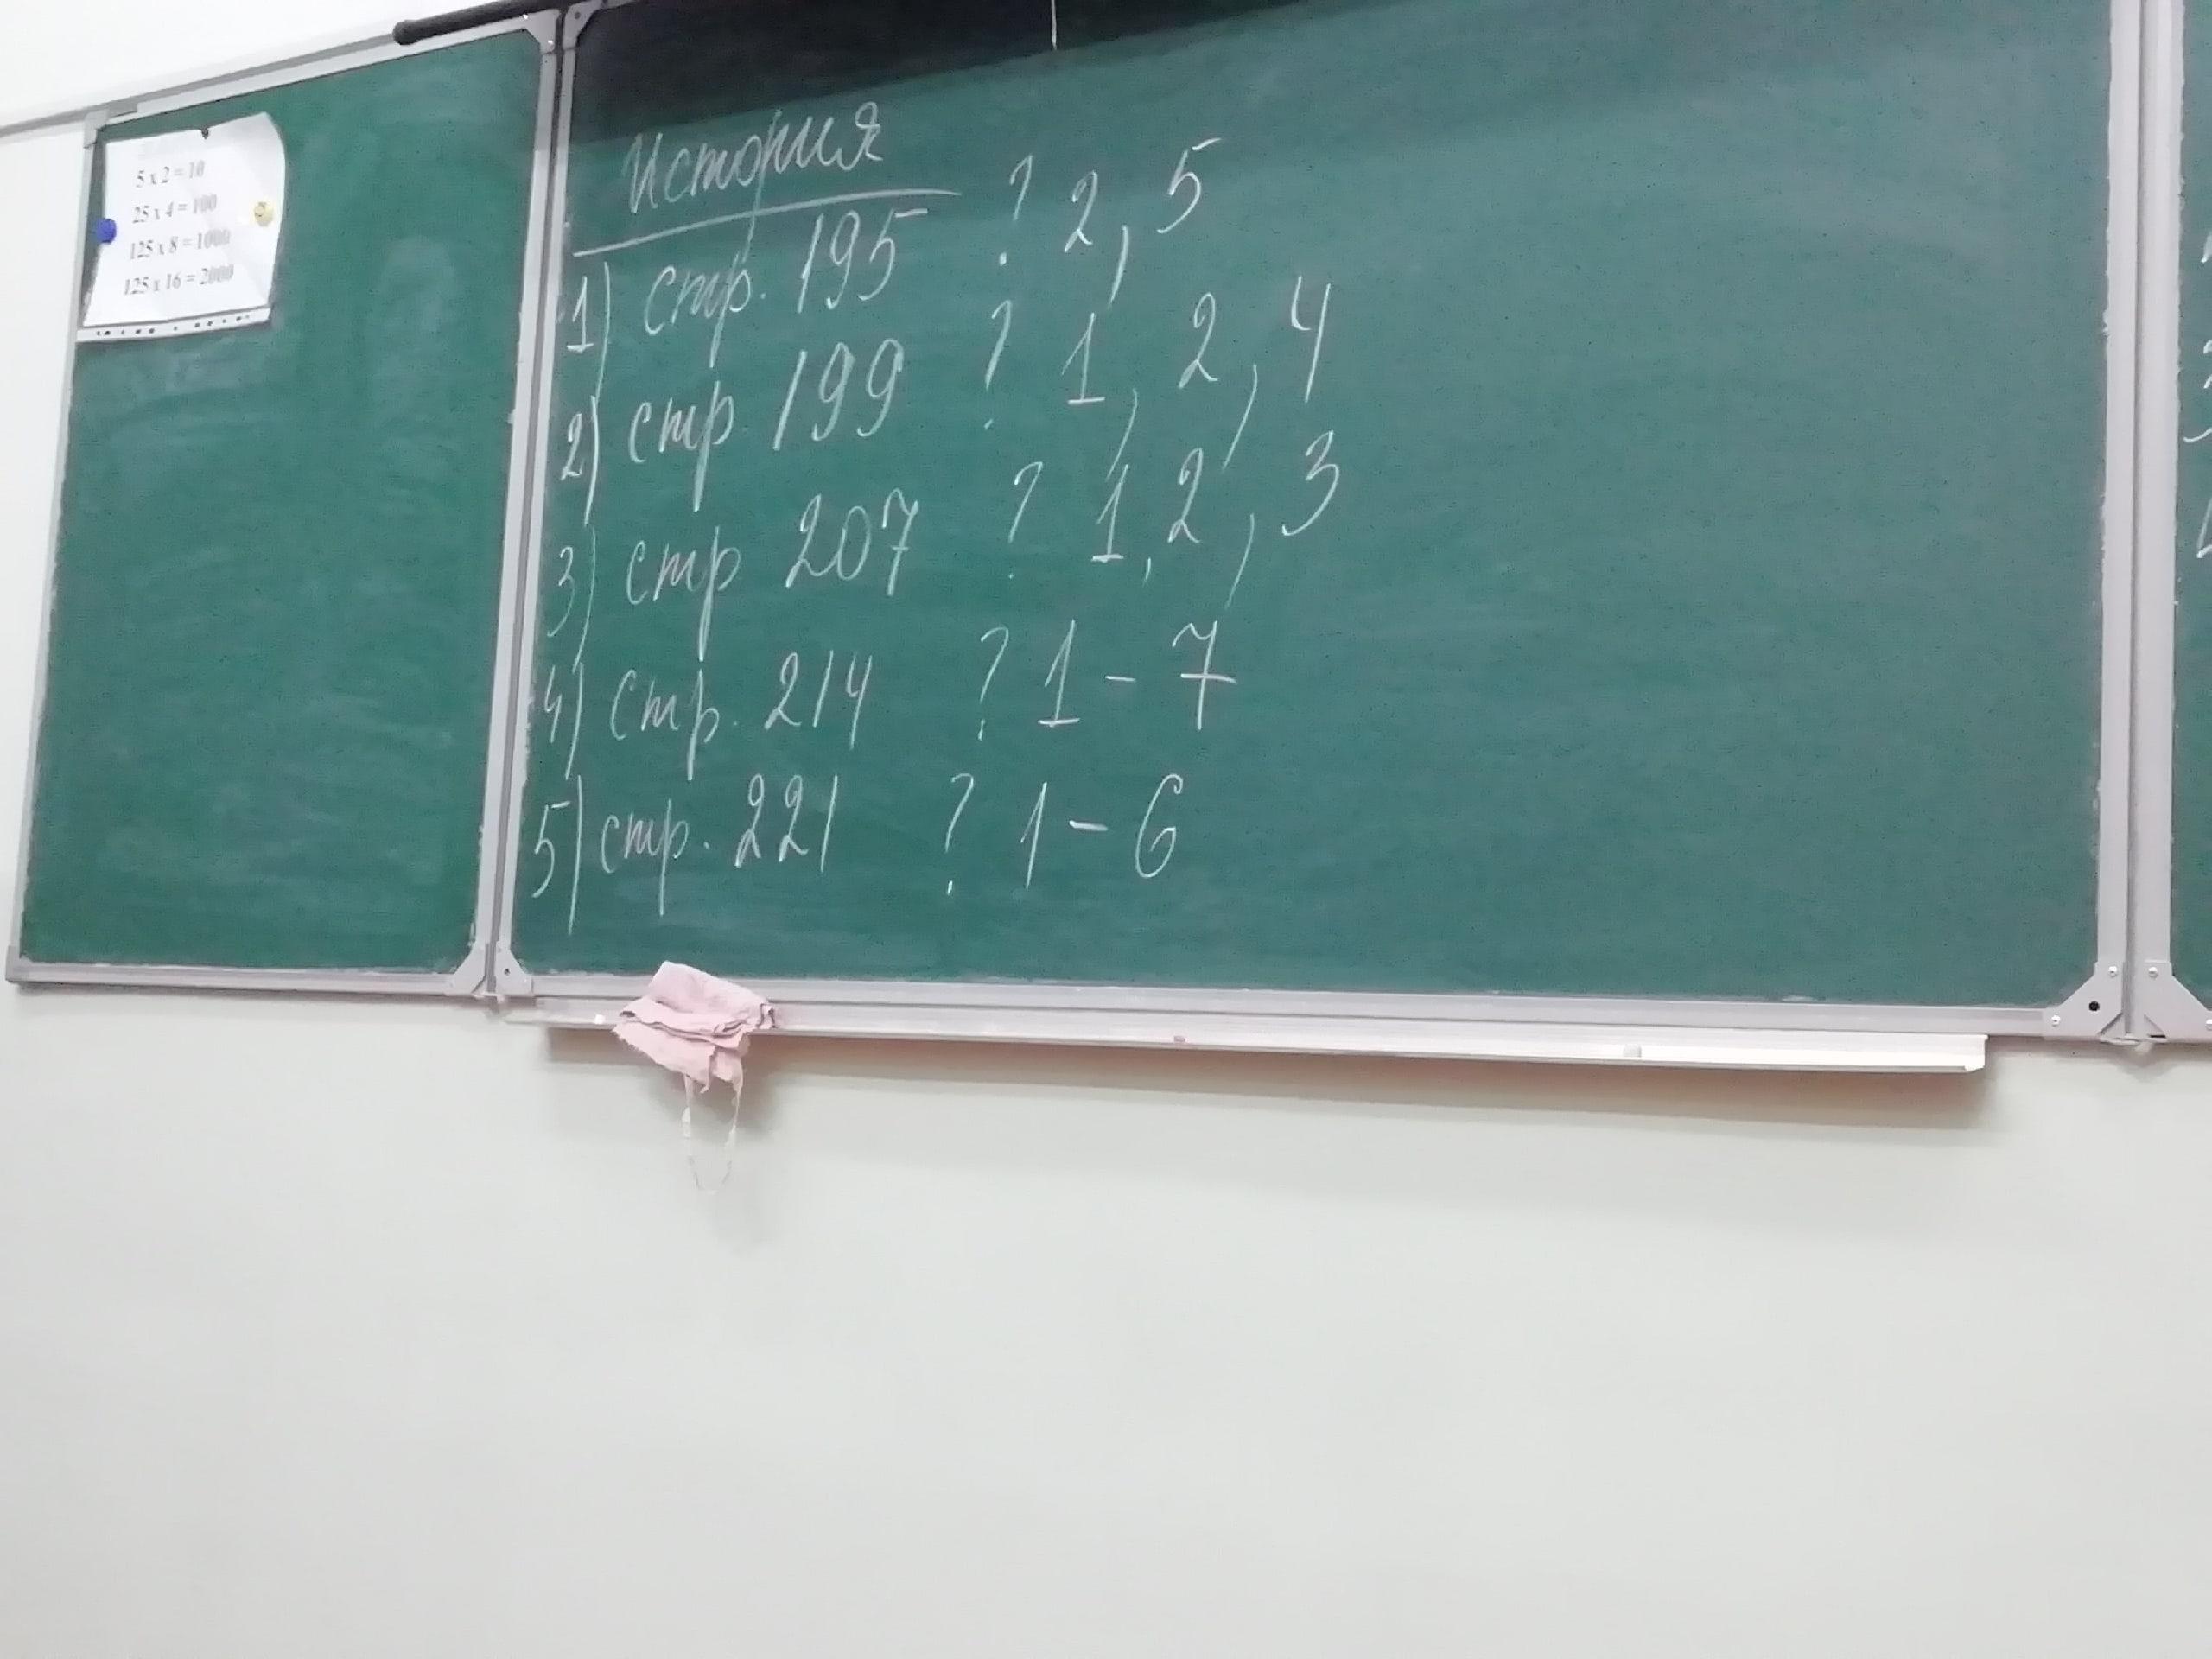 5 x 2 = 10
25 x 4 = 100
125 x 8 = 1000
125 x 16 = 2000
История
1) стр. 195 ? 2, 5
2) стр 199 ? 1, 2, 4
3) стр 207 ? 1, 2, 3
4) стр. 214 ? 1 - 7
5) стр. 221 ? 1 - 6